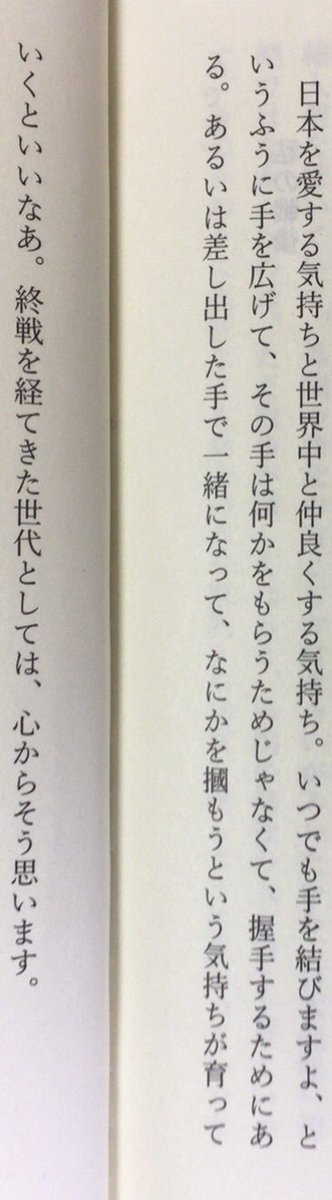 日本を愛する気持ちと世界中と仲良くする気持ち。いつでも手を結びますよ、と
いうふうに手を広げて、その手は何かをもらうためじゃなくて、握手するためにあ
る。あるいは差し出した手で一緒になって、なにかを摑もうという気持ちが育って
いくといいなあ。終戦を経てきた世代としては、心からそう思います。